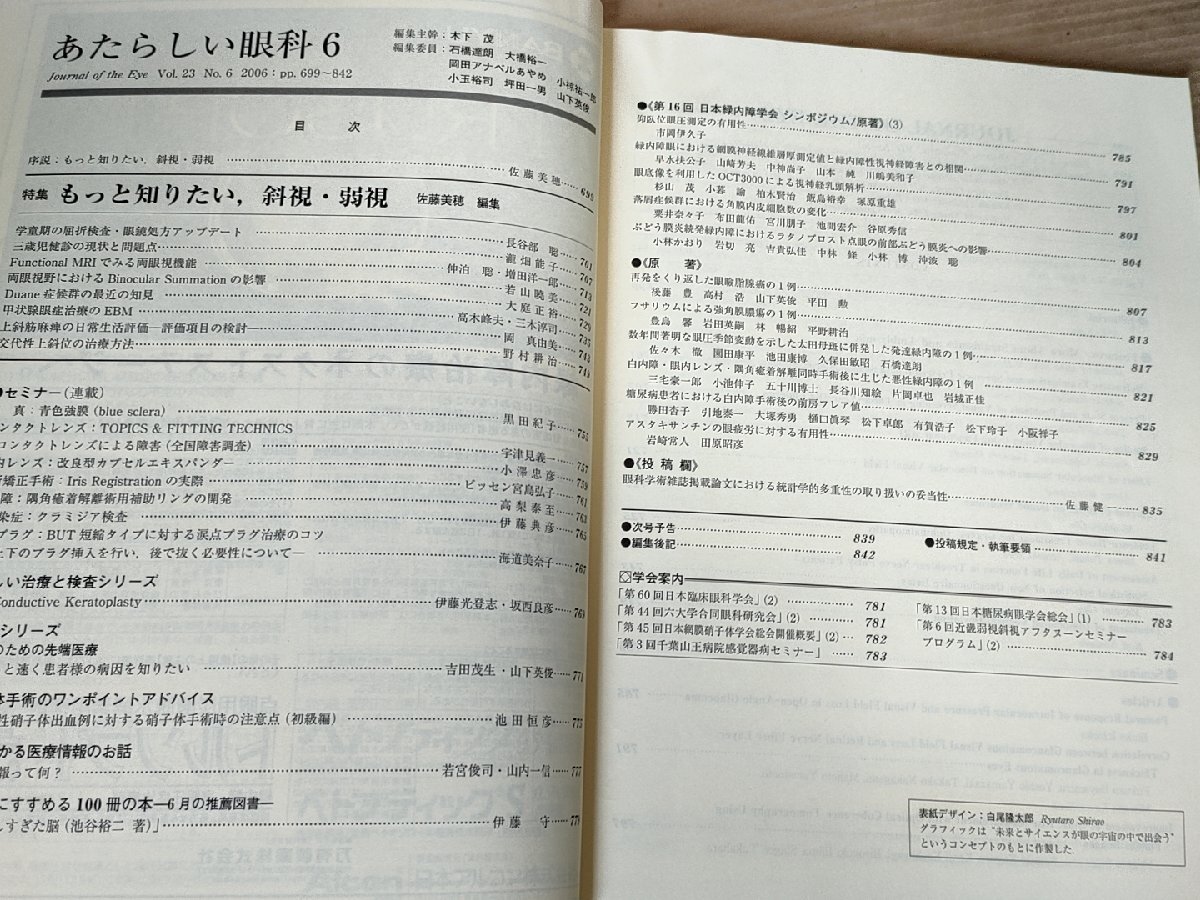 あたらしい眼科 6
Journal of the Eye Vol. 23 No. 6 2006 : pp. 699~842
編集主幹：木下 茂
編集委員：石橋達朗 大橋裕一
岡田アナベルあやめ 小椋祐一郎
小玉裕司 坪田一男 山下英俊
目 次
序説：もっと知りたい，斜視・弱視 佐藤美穂
特集 もっと知りたい，斜視・弱視 佐藤美穂 編集
学童期の屈折検査・眼鏡処方アップデート 長谷部 聡
三歳児健診の現状と問題点 瀧畑能子
Functional MRI でみる両眼視機能 仲泊 聡・増田洋一郎
両眼視野における Binocular Summation の影響 若山曉美
Duane 症候群の最近の知見 大庭正裕
甲状腺眼症治療の EBM 高木峰夫・三木淳司
上斜筋麻痺の日常生活評価—評価項目の検討— 岡 真由美
交代性上斜位の治療方法 野村耕治
●セミナー（連載）
真：青色強膜（blue sclera） 黒田紀子 755
ンタクトレンズ：TOPICS & FITTING TECHNICS
コンタクトレンズによる障害（全国障害調査） 宇津見義一 757
内レンズ：改良型カプセルエキスパンダー 小澤忠彦 759
矯正手術：Iris Registration の実際 ビッセン宮島弘子 761
障：隅角癒着解離術用補助リングの開発 高梨泰至 763
染症：クラミジア検査 伊藤典彦 765
プラグ：BUT 短縮タイプに対する涙点プラグ治療のコツ
上下のプラグ挿入を行い，後で抜く必要性について— 海道美奈子 767
しい治療と検査シリーズ
Conductive Keratoplasty 伊藤光登志・坂西良彦 769
シリーズ
のための先端医療
と速く患者様の病因を知りたい 吉田茂生・山下英俊 771
体手術のワンポイントアドバイス
性硝子体出血例に対する硝子体手術時の注意点（初級編） 池田恒彦 775
かる医療情報のお話
報って何？ 若宮俊司・山内一信 777
にすすめる 100 冊の本—6 月の推薦図書—
しすぎた脳（池谷裕二 著）」 伊藤 守 779
●《第 16 回 日本緑内障学会 シンポジウム/原著》(3)
仰臥位眼圧測定の有用性 785
市岡伊久子
緑内障眼における網膜神経線維層厚測定値と緑内障性視神経障害との相関 791
早水扶公子 山崎芳夫 中神尚子 山本 純 川嶋美和子
眼底像を利用した OCT3000 による視神経乳頭解析 797
杉山 茂 小暮 諭 柏木賢治 飯島裕幸 塚原重雄
落屑症候群における角膜内皮細胞数の変化 801
粟井奈々子 布田龍佑 宮川朋子 池間宏介 谷原秀信
ぶどう膜炎続発緑内障におけるラタノプロスト点眼の前部ぶどう膜炎への影響 804
小林かおり 岩切 亮 吉貴弘佳 中林 條 小林 博 沖波 聡
●《原 著》
再発をくり返した眼瞼脂腺癌の 1 例 807
後藤 豊 高村 浩 山下英俊 平田 勳
フサリウムによる強角膜膿瘍の 1 例 813
豊島 馨 岩田英嗣 林 暢紹 平野耕治
数年間著明な眼圧季節変動を示した太田母斑に併発した発達緑内障の 1 例 817
佐々木 徹 園田康平 池田康博 久保田敏昭 石橋達朗
白内障・眼内レンズ・隅角癒着解離同時手術後に生じた悪性緑内障の 1 例 821
三宅豪一郎 小池伸子 五十川博士 長谷川知絵 片岡卓也 岩城正佳
糖尿病患者における白内障手術後の前房フレア値 825
勝田杏子 引地泰一 大塚秀勇 樋口眞琴 松下卓郎 有賀浩子 松下玲子 小阪祥子
アスタキサンチンの眼疲労に対する有用性 829
岩崎常人 田原昭彦
●《投 稿 欄》
眼科学術雑誌掲載論文における統計学的多重性の取り扱いの妥当性 佐藤健一 835
●次号予告 839
●編集後記 842
●投稿規定・執筆要領 841
◎学会案内
「第 60 回日本臨床眼科学会」(2) 781
「第 44 回六大学合同眼科研究会」(2) 781
「第 45 回日本網膜硝子体学会総会開催概要」(2) 782
「第 3 回千葉山王病院感覚器病セミナー」 783
「第 13 回日本糖尿病眼学会総会」(1) 783
「第 6 回近畿弱視斜視アフタヌーンセミナー
プログラム」(2) 784
表紙デザイン：白尾隆太郎 Ryutaro Shirao
グラフィックは“未来とサイエンスが眼の宇宙の中で出会う”
というコンセプトのもとに作製した．